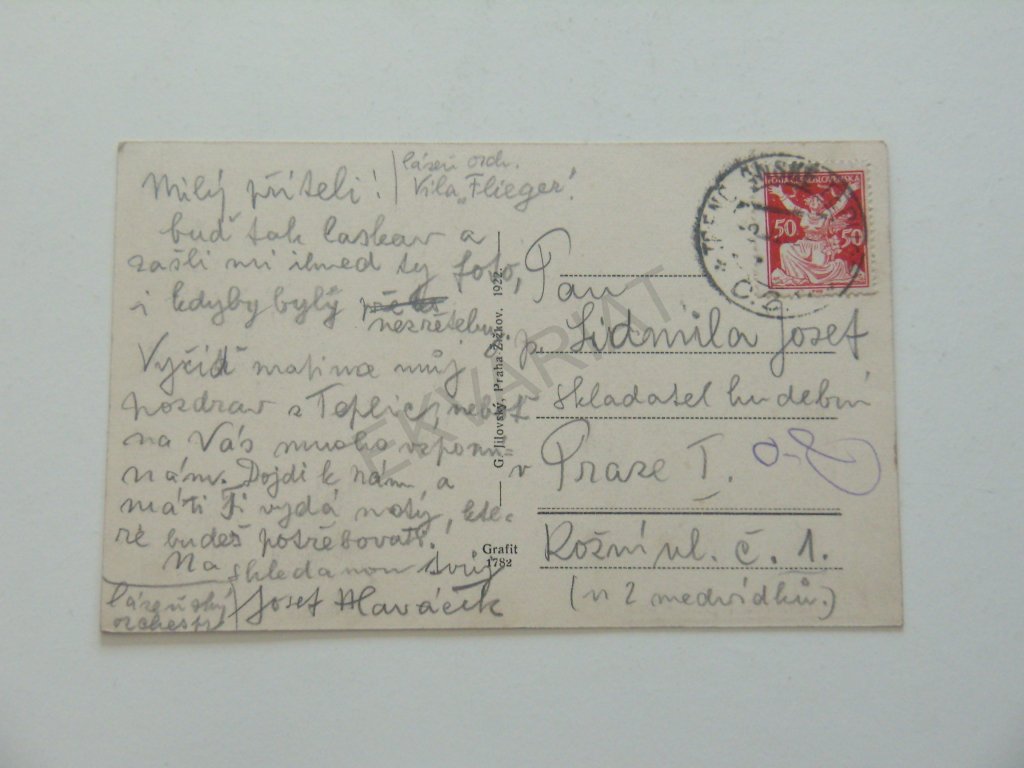 Milý příteli!
lázeň. orch.
Vila „Flieger“.
buď tak laskav a
zašli mi ihned ty foto,
i kdyby byly
nezřetelny.
Vyřiď mamince můj
pozdrav z Teplic, neboť
na Vás mnoho vzpomí=
nám. Dojdi k nám, a
máti Ti vydá noty, kte=
ré budeš potřebovati.
Na shledanou tvůj
Josef Hlaváček
lázeňský
orchestr
G. Jilovský, Praha-Žižkov. 1922.
Grafit
1782
Pan
p. Lidmila Josef
skladatel hudební
v Praze I.
Rožní ul. č. 1.
(u 2 medvídků.)
POŠTA ČESKOSLOVENSKÁ
50 50
EKVARIAT